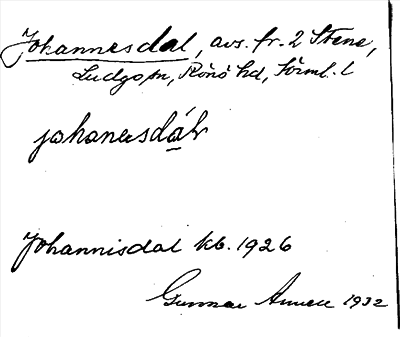 Johannesdal, avs. fr. 2 Stene,
Ludgo sn, Rönö hd, Sörml. l
johanɛsdɑ́ḷ
Johannisdal kb. 1926
Gunnar 1932